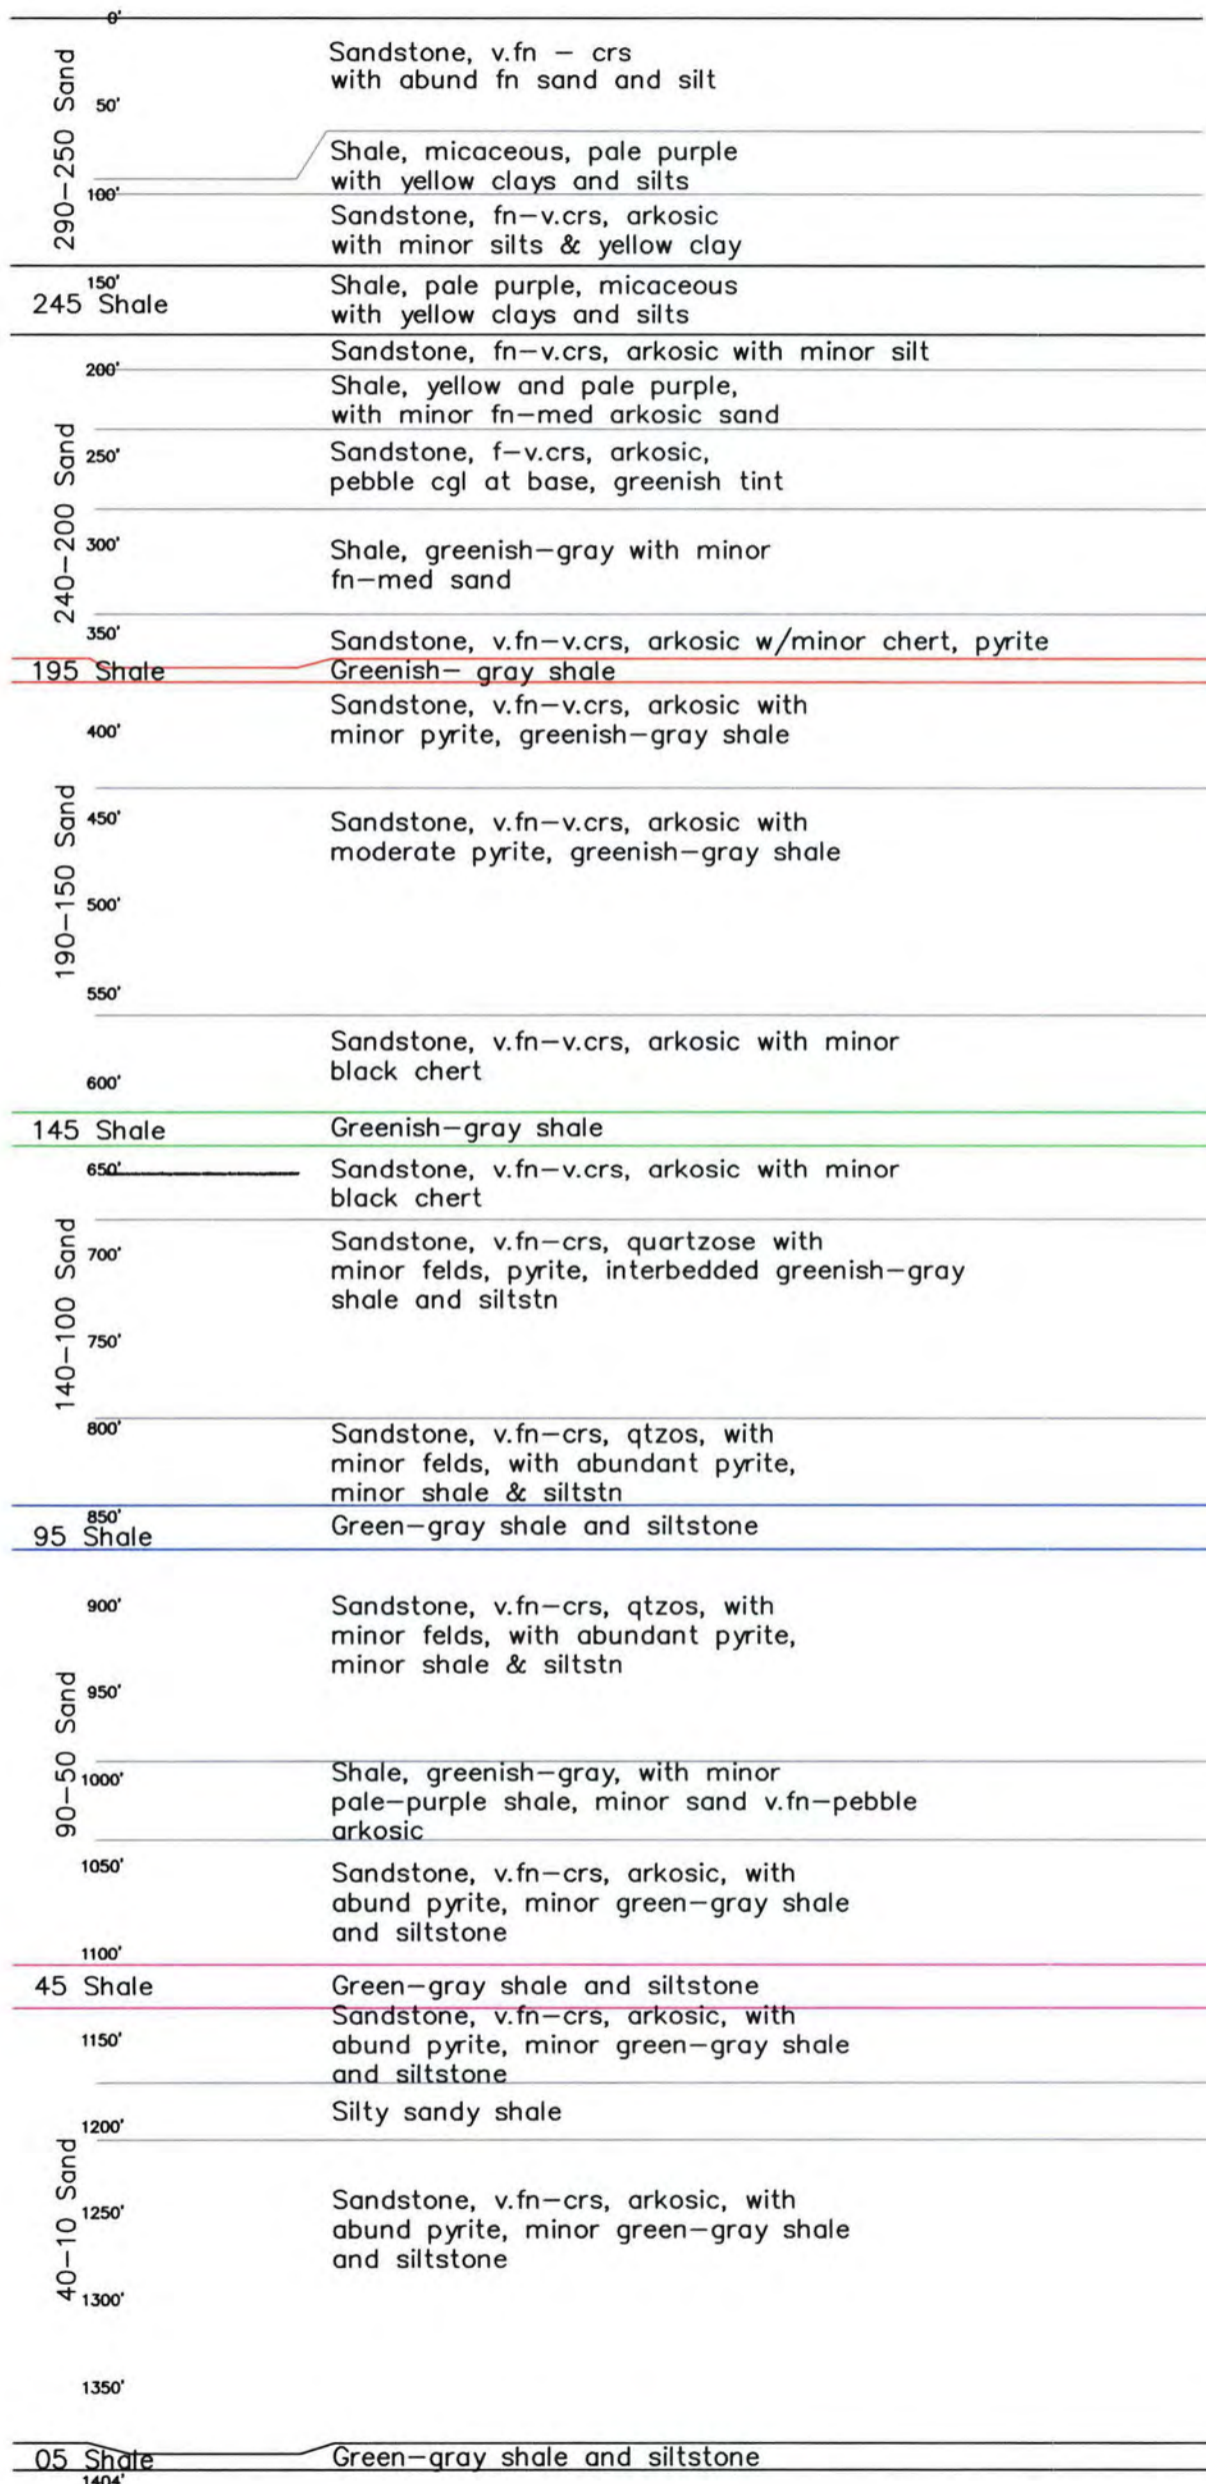 0'
Sandstone, v.fn – crs
with abund fn sand and silt
50'
290–250 Sand
Shale, micaceous, pale purple
with yellow clays and silts
100'
Sandstone, fn–v.crs, arkosic
with minor silts & yellow clay
150'
245 Shale
Shale, pale purple, micaceous
with yellow clays and silts
Sandstone, fn–v.crs, arkosic with minor silt
200'
Shale, yellow and pale purple,
with minor fn–med arkosic sand
240–200 Sand
250'
Sandstone, f–v.crs, arkosic,
pebble cgl at base, greenish tint
300'
Shale, greenish–gray with minor
fn–med sand
350'
Sandstone, v.fn–v.crs, arkosic w/minor chert, pyrite
195 Shale
Greenish– gray shale
Sandstone, v.fn–v.crs, arkosic with
minor pyrite, greenish–gray shale
400'
190–150 Sand
450'
Sandstone, v.fn–v.crs, arkosic with
moderate pyrite, greenish–gray shale
500'
550'
Sandstone, v.fn–v.crs, arkosic with minor
black chert
600'
145 Shale
Greenish–gray shale
650'
Sandstone, v.fn–v.crs, arkosic with minor
black chert
140–100 Sand
700'
Sandstone, v.fn–crs, quartzose with
minor felds, pyrite, interbedded greenish–gray
shale and siltstn
750'
800'
Sandstone, v.fn–crs, qtzos, with
minor felds, with abundant pyrite,
minor shale & siltstn
850'
95 Shale
Green–gray shale and siltstone
900'
Sandstone, v.fn–crs, qtzos, with
minor felds, with abundant pyrite,
minor shale & siltstn
90–50 Sand
950'
1000'
Shale, greenish–gray, with minor
pale–purple shale, minor sand v.fn–pebble
arkosic
1050'
Sandstone, v.fn–crs, arkosic, with
abund pyrite, minor green–gray shale
and siltstone
1100'
45 Shale
Green–gray shale and siltstone
Sandstone, v.fn–crs, arkosic, with
abund pyrite, minor green–gray shale
and siltstone
1150'
Silty sandy shale
1200'
40–10 Sand
1250'
Sandstone, v.fn–crs, arkosic, with
abund pyrite, minor green–gray shale
and siltstone
1300'
1350'
05 Shale
Green–gray shale and siltstone
1404'